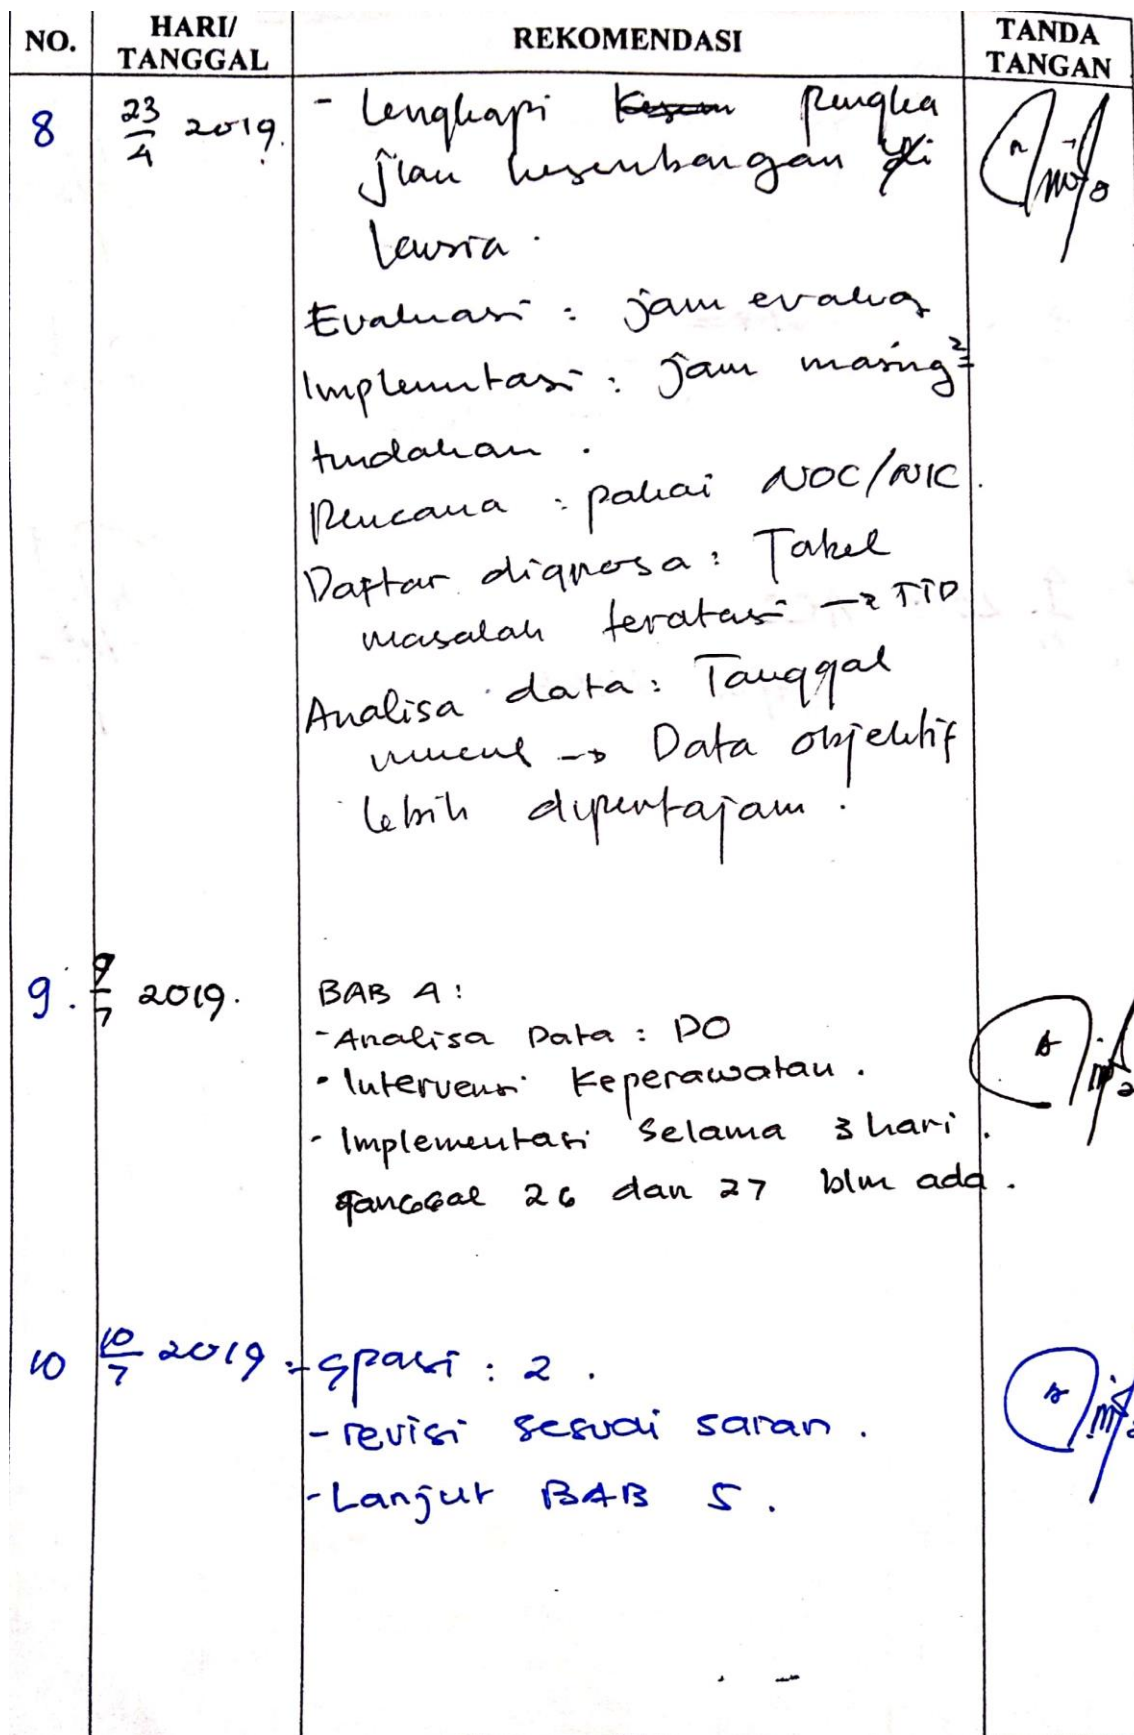 NO. HARI/ TANGGAL REKOMENDASI TANDA TANGAN
8 23/4 2019. - Lengkapi pengka
jian keseimbangan di
Lansia.
Evaluasi : jam evaluasi
Implementasi : jam masing²
tindakan.
Rencana : pakai NOC/NIC.
Daftar diagnosa : Tabel
masalah teratasi → TTD
Analisa data : Tanggal
muncul → Data objektif
lebih dipertajam.
9. 9/7 2019. BAB 4 :
- Analisa Data : DO
- Intervensi Keperawatan.
- Implementasi selama 3 hari.
Tanggal 26 dan 27 blm ada.
10 10/7 2019 - Spasi : 2.
- revisi sesuai saran.
- Lanjut BAB 5.